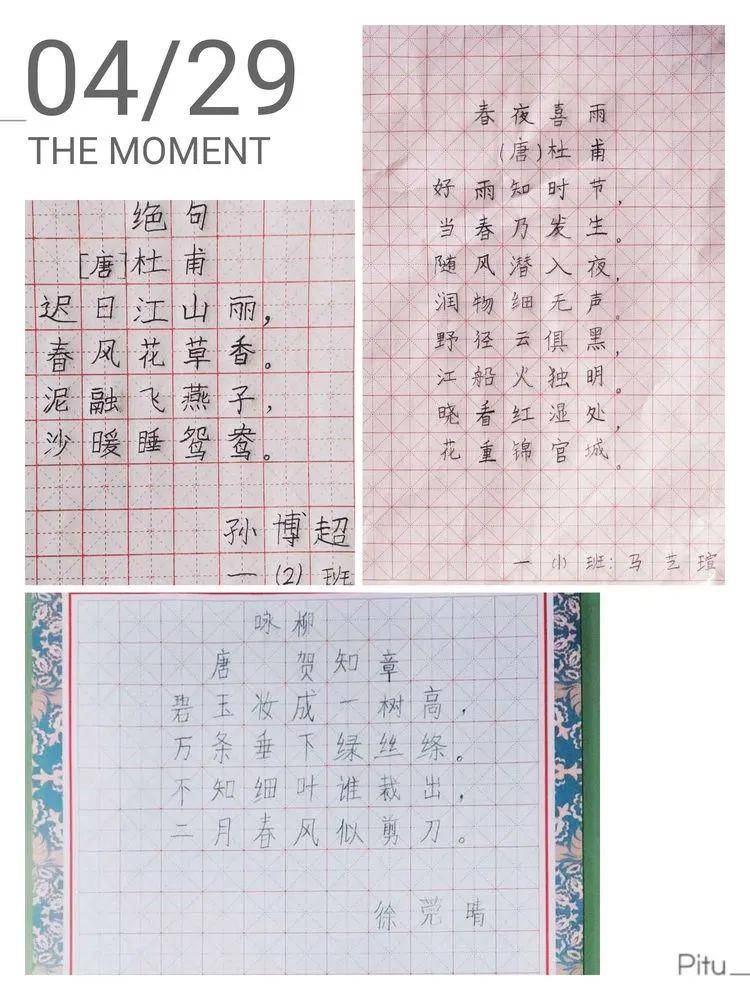 04/29
THE MOMENT
绝句
[唐]杜甫
迟日江山丽，
春风花草香。
泥融飞燕子，
沙暖睡鸳鸯。
孙博超
一(2)班
春夜喜雨
(唐)杜甫
好雨知时节，
当春乃发生。
随风潜入夜，
润物细无声。
野径云俱黑，
江船火独明。
晓看红湿处，
花重锦官城。
一小班：马艺瑄
咏柳
唐 贺知章
碧玉妆成一树高，
万条垂下绿丝绦。
不知细叶谁裁出，
二月春风似剪刀。
徐莞晴
Pitu